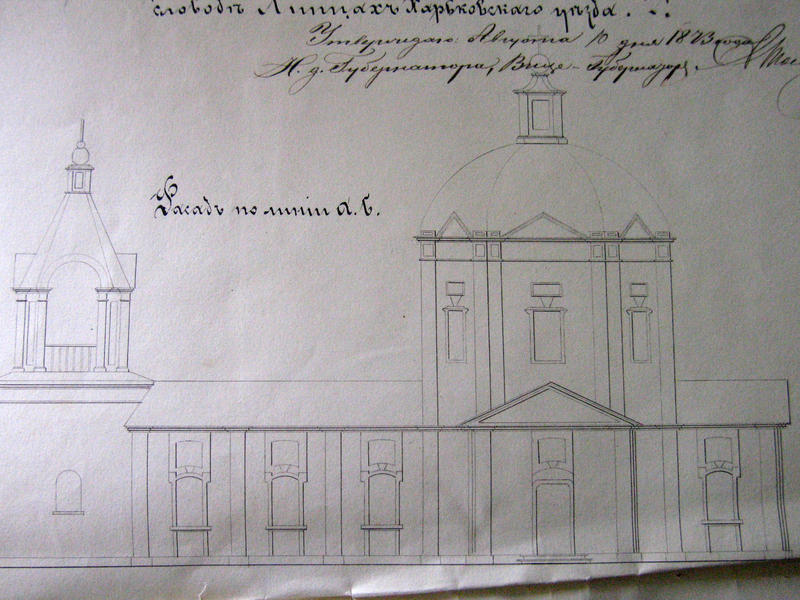 слободѣ Липцахъ Харьковскаго уѣзда.
Утверждаю: Августа 10 дня 1873 года
И. д. Губернатора, Вице-Губернаторъ
Фасадъ по линіи А. Б.